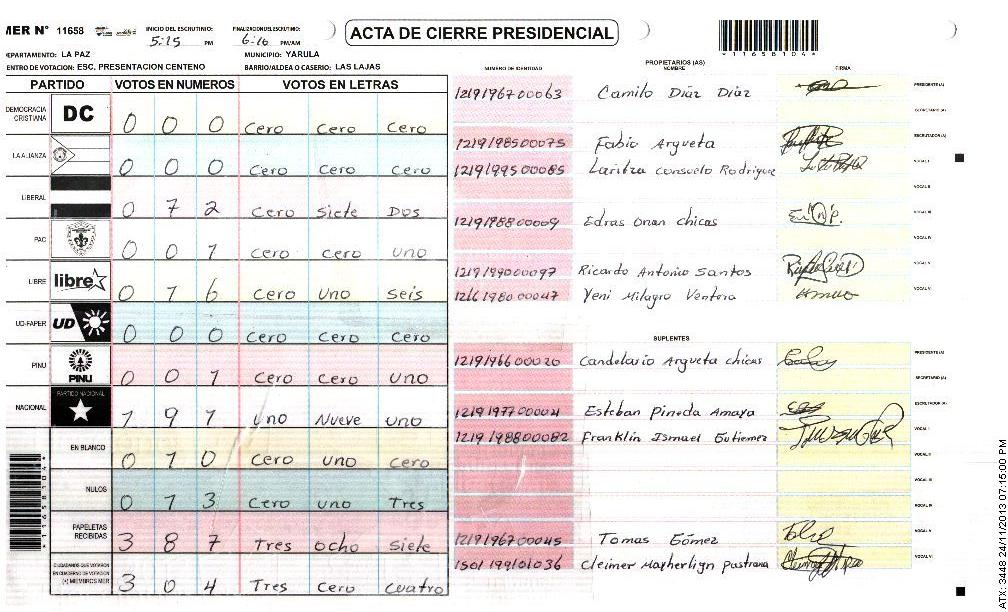 MER N° 11658
INICIO DEL ESCRUTINIO:
5:15 PM
FINALIZACION DEL ESCRUTINIO:
6:10 PM/AM
ACTA DE CIERRE PRESIDENCIAL
*11658104*
DEPARTAMENTO: LA PAZ
MUNICIPIO: YARULA
CENTRO DE VOTACION: ESC. PRESENTACION CENTENO
BARRIO/ALDEA O CASERIO: LAS LAJAS
PARTIDO VOTOS EN NUMEROS VOTOS EN LETRAS
DEMOCRACIA CRISTIANA DC 0 0 0 Cero Cero Cero
LA ALIANZA 0 0 0 Cero Cero Cero
LIBERAL 0 7 2 Cero Siete Dos
PAC 0 0 1 Cero Cero uno
LIBRE libre 0 1 6 Cero Uno Seis
UD-FAPER UD 0 0 0 Cero Cero Cero
PINU PINU 0 0 1 Cero Cero Uno
NACIONAL PARTIDO NACIONAL 1 9 1 Uno Nueve uno
EN BLANCO 0 1 0 Cero uno Cero
NULOS 0 1 3 Cero uno Tres
PAPELETAS RECIBIDAS 3 8 7 Tres ocho Siete
CIUDADANOS QUE VOTARON
EN CUADERNO DE VOTACION
(+) MIEMBROS MER 3 0 4 Tres Cero cuatro
PROPIETARIOS (AS)
NUMERO DE IDENTIDAD NOMBRE FIRMA
1219196700063 Camilo Díaz Díaz PRESIDENTE(A)
SECRETARIO(A)
1219198500075 Fabio Argueta ESCRUTADOR(A)
1219199500085 Laritza Consuelo Rodriguez VOCAL I
VOCAL II
1219198800009 Edras Onan chicas VOCAL III
VOCAL IV
1219199000097 Ricardo Antonio Santos VOCAL V
1216198000047 Yeni Milagro Ventora VOCAL VI
SUPLENTES
1219196600020 Candelario Argueta chicas PRESIDENTE(A)
SECRETARIO(A)
1219197700021 Esteban Pineda Amaya ESCRUTADOR(A)
1219198800082 Franklin Ismael Gutierrez VOCAL I
VOCAL II
VOCAL III
VOCAL IV
1219196700045 Tomas Gómez VOCAL V
1501199101036 Cleimer Mayherlign Pastrana VOCAL VI
*11658104*
ATX: 3448 24/11/2013 07:15:00 PM